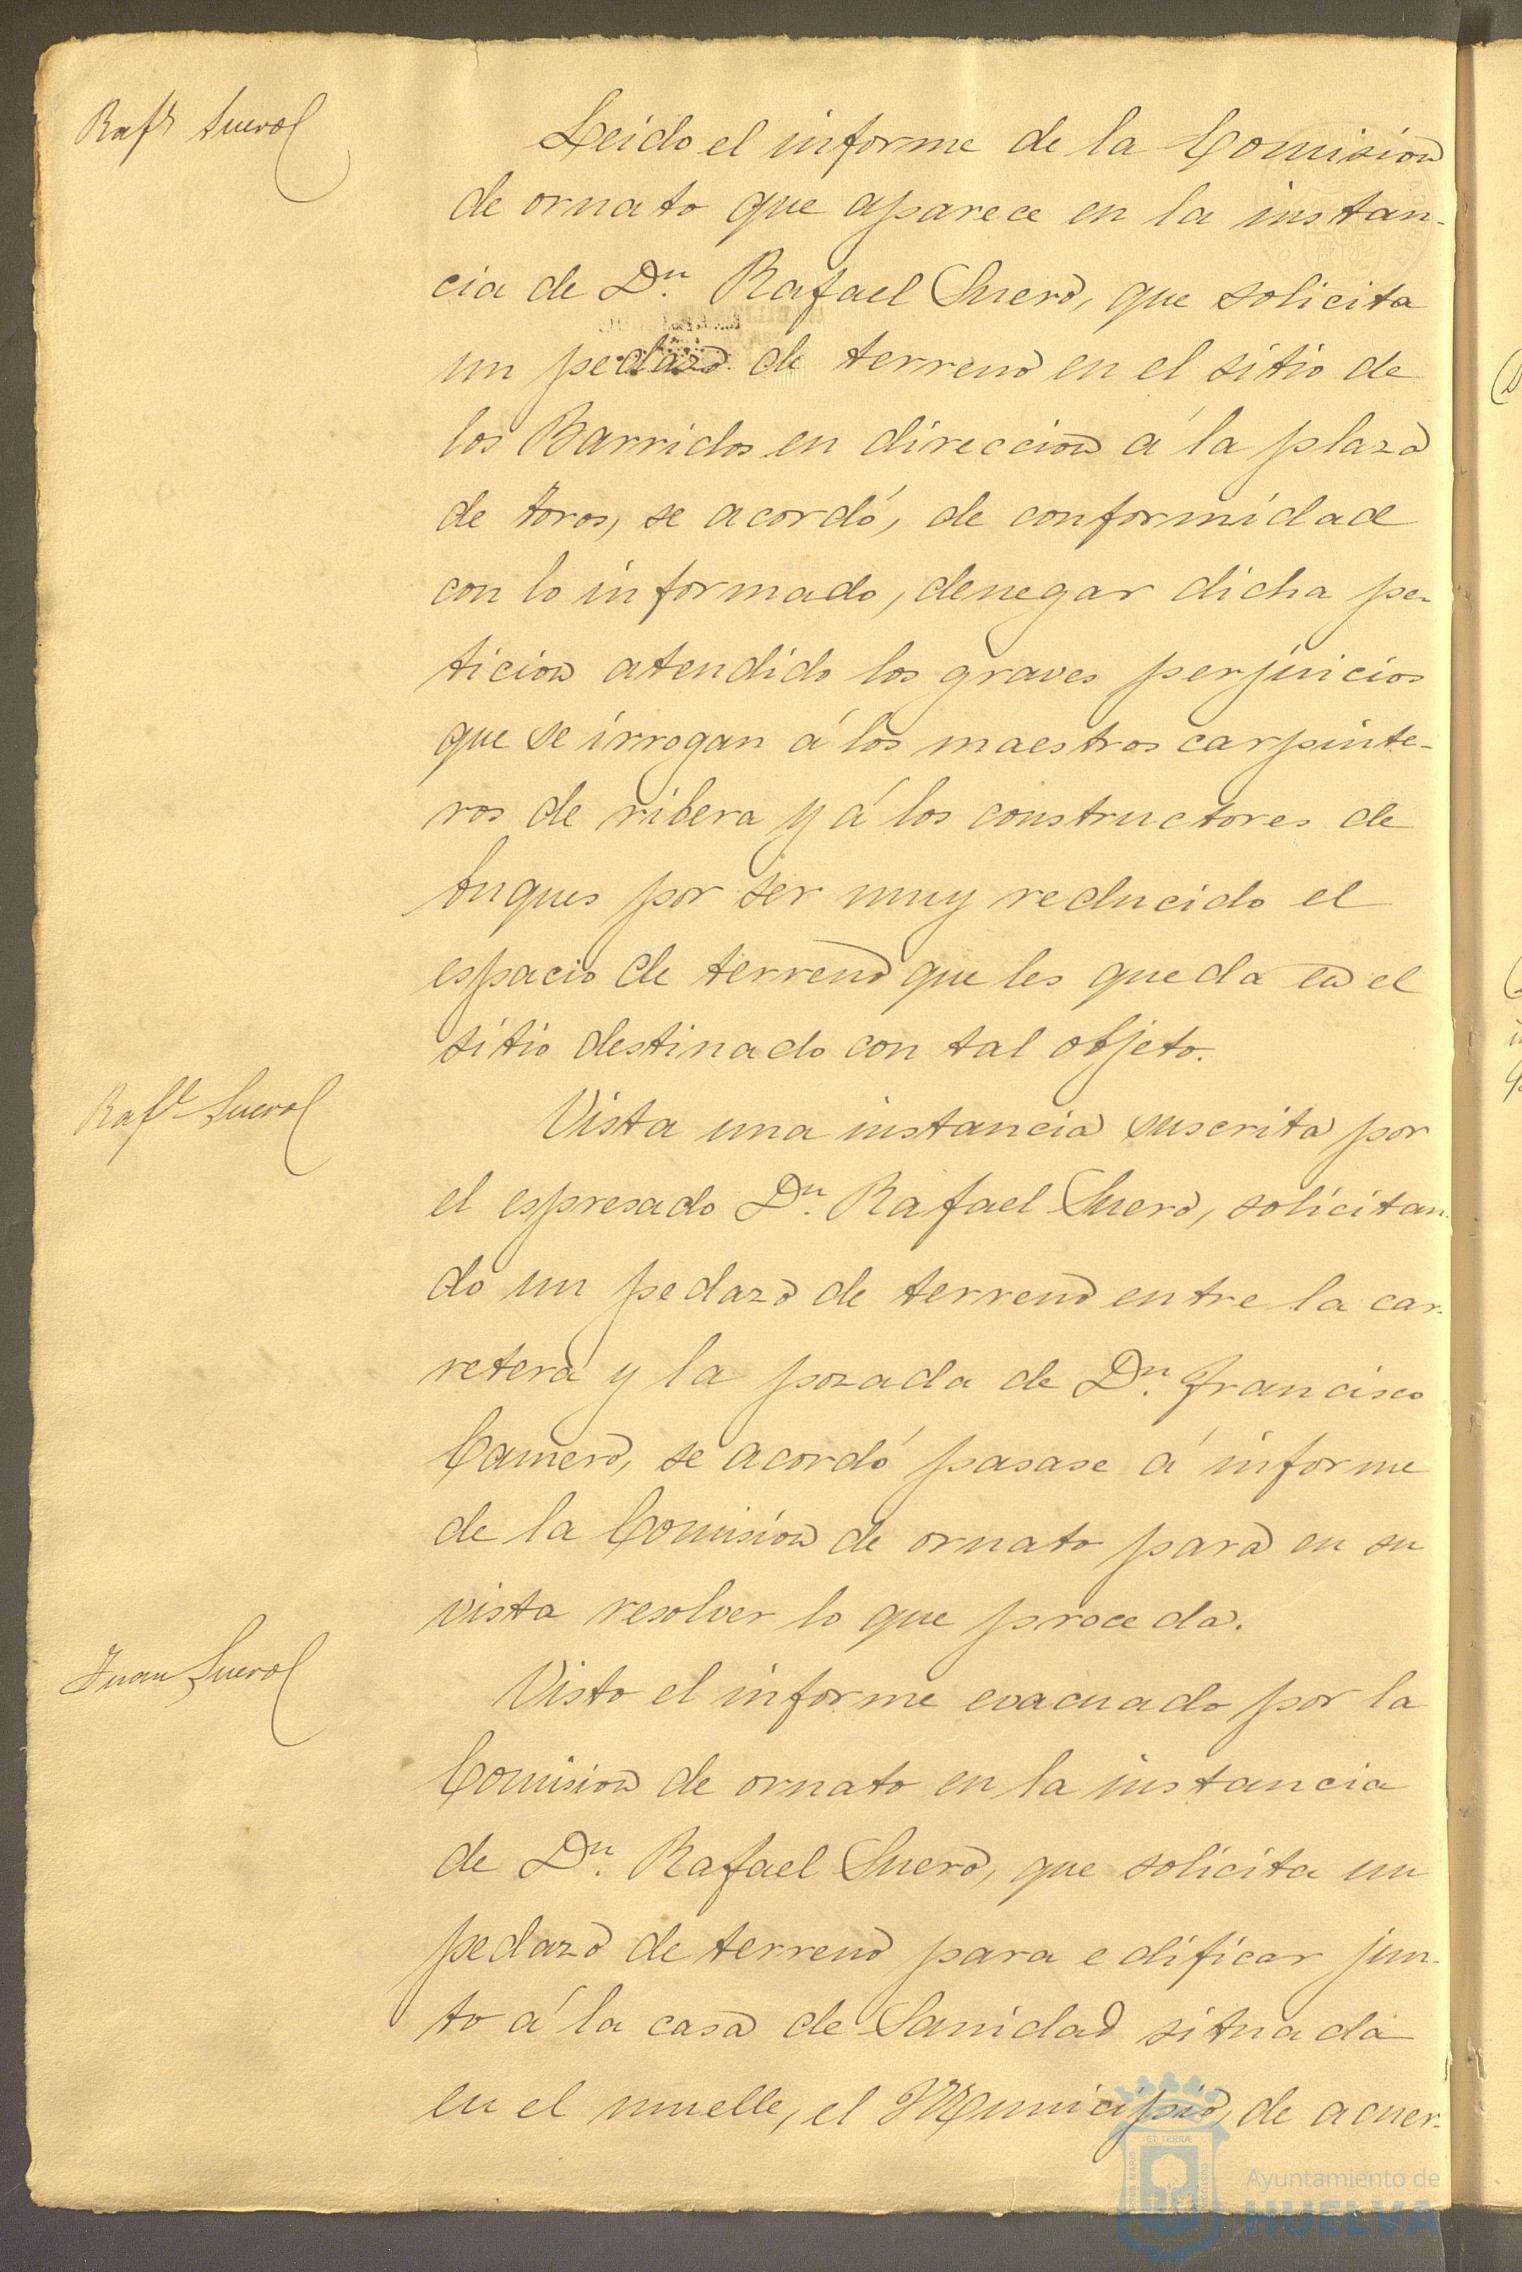 Rafl Suero
Leido el informe de la Comision
de ornato que aparece en la instan-
cia de Dn. Rafael Suero, que solicita
un pedazo de terreno en el sitio de
los Barridos en direccion á la plaza
de toros, se acordó, de conformidad
con lo informado, denegar dicha pe-
ticion atendido los graves perjuicios
que se irrogan á los maestros carpinte-
ros de ribera y á los constructores de
buques por ser muy reducido el
espacio de terreno que les queda en el
sitio destinado con tal objeto.
Rafl Suero
Vista una instancia suscrita por
el espresado Dn. Rafael Suero, solicitan-
do un pedazo de terreno entre la car-
retera y la pozada de Dn. Francisco
Camero, se acordó pasase á informe
de la Comision de ornato para en su
vista resolver lo que proceda.
Juan Suero
Visto el informe evacuado por la
Comision de ornato en la instancia
de Dn. Rafael Suero, que solicita un
pedazo de terreno para edificar jun-
to á la casa de Sanidad situada
en el muelle, el Municipio, de acuer-
Ayuntamiento de
HUELVA